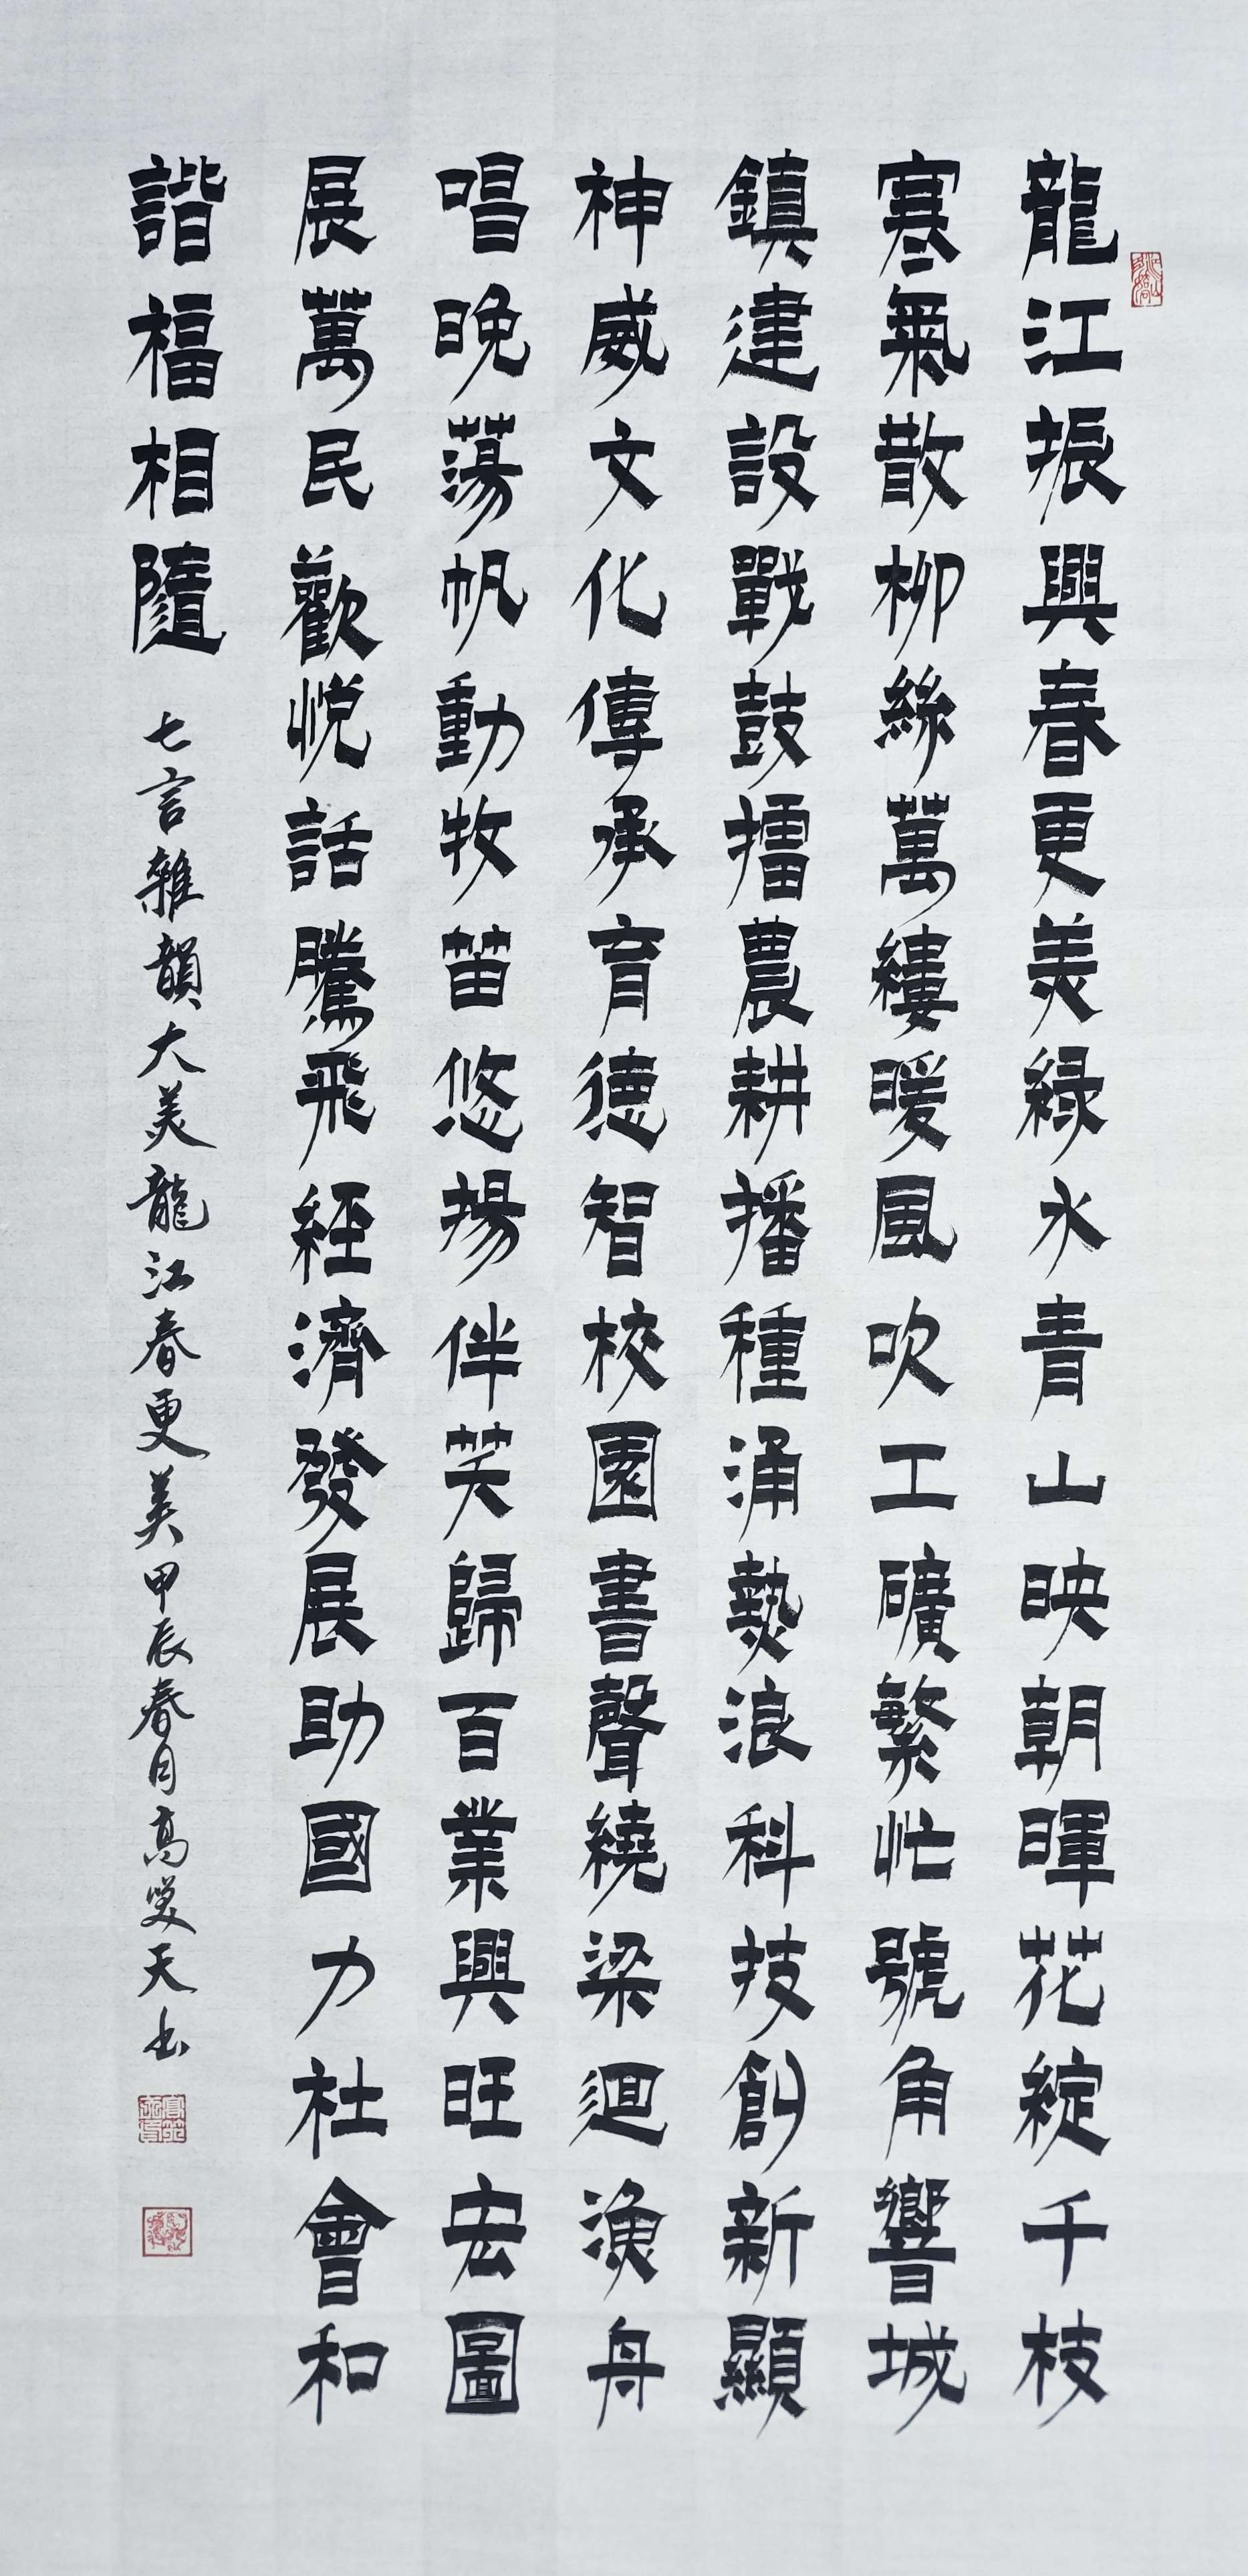 龍江振興春更美綠水青山映朝暉花綻千枝
寒氣散柳絲萬縷暖風吹工礦繁忙號角響城
鎮建設戰鼓擂農耕播種涌熱浪科技創新顯
神威文化傳承育德智校園書聲繞梁迴漁舟
唱晚蕩帆動牧笛悠揚伴笑歸百業興旺宏圖
展萬民歡悅話騰飛經濟發展助國力社會和
諧福相隨
七言雜韻大美龍江春更美甲辰春月高笑天书